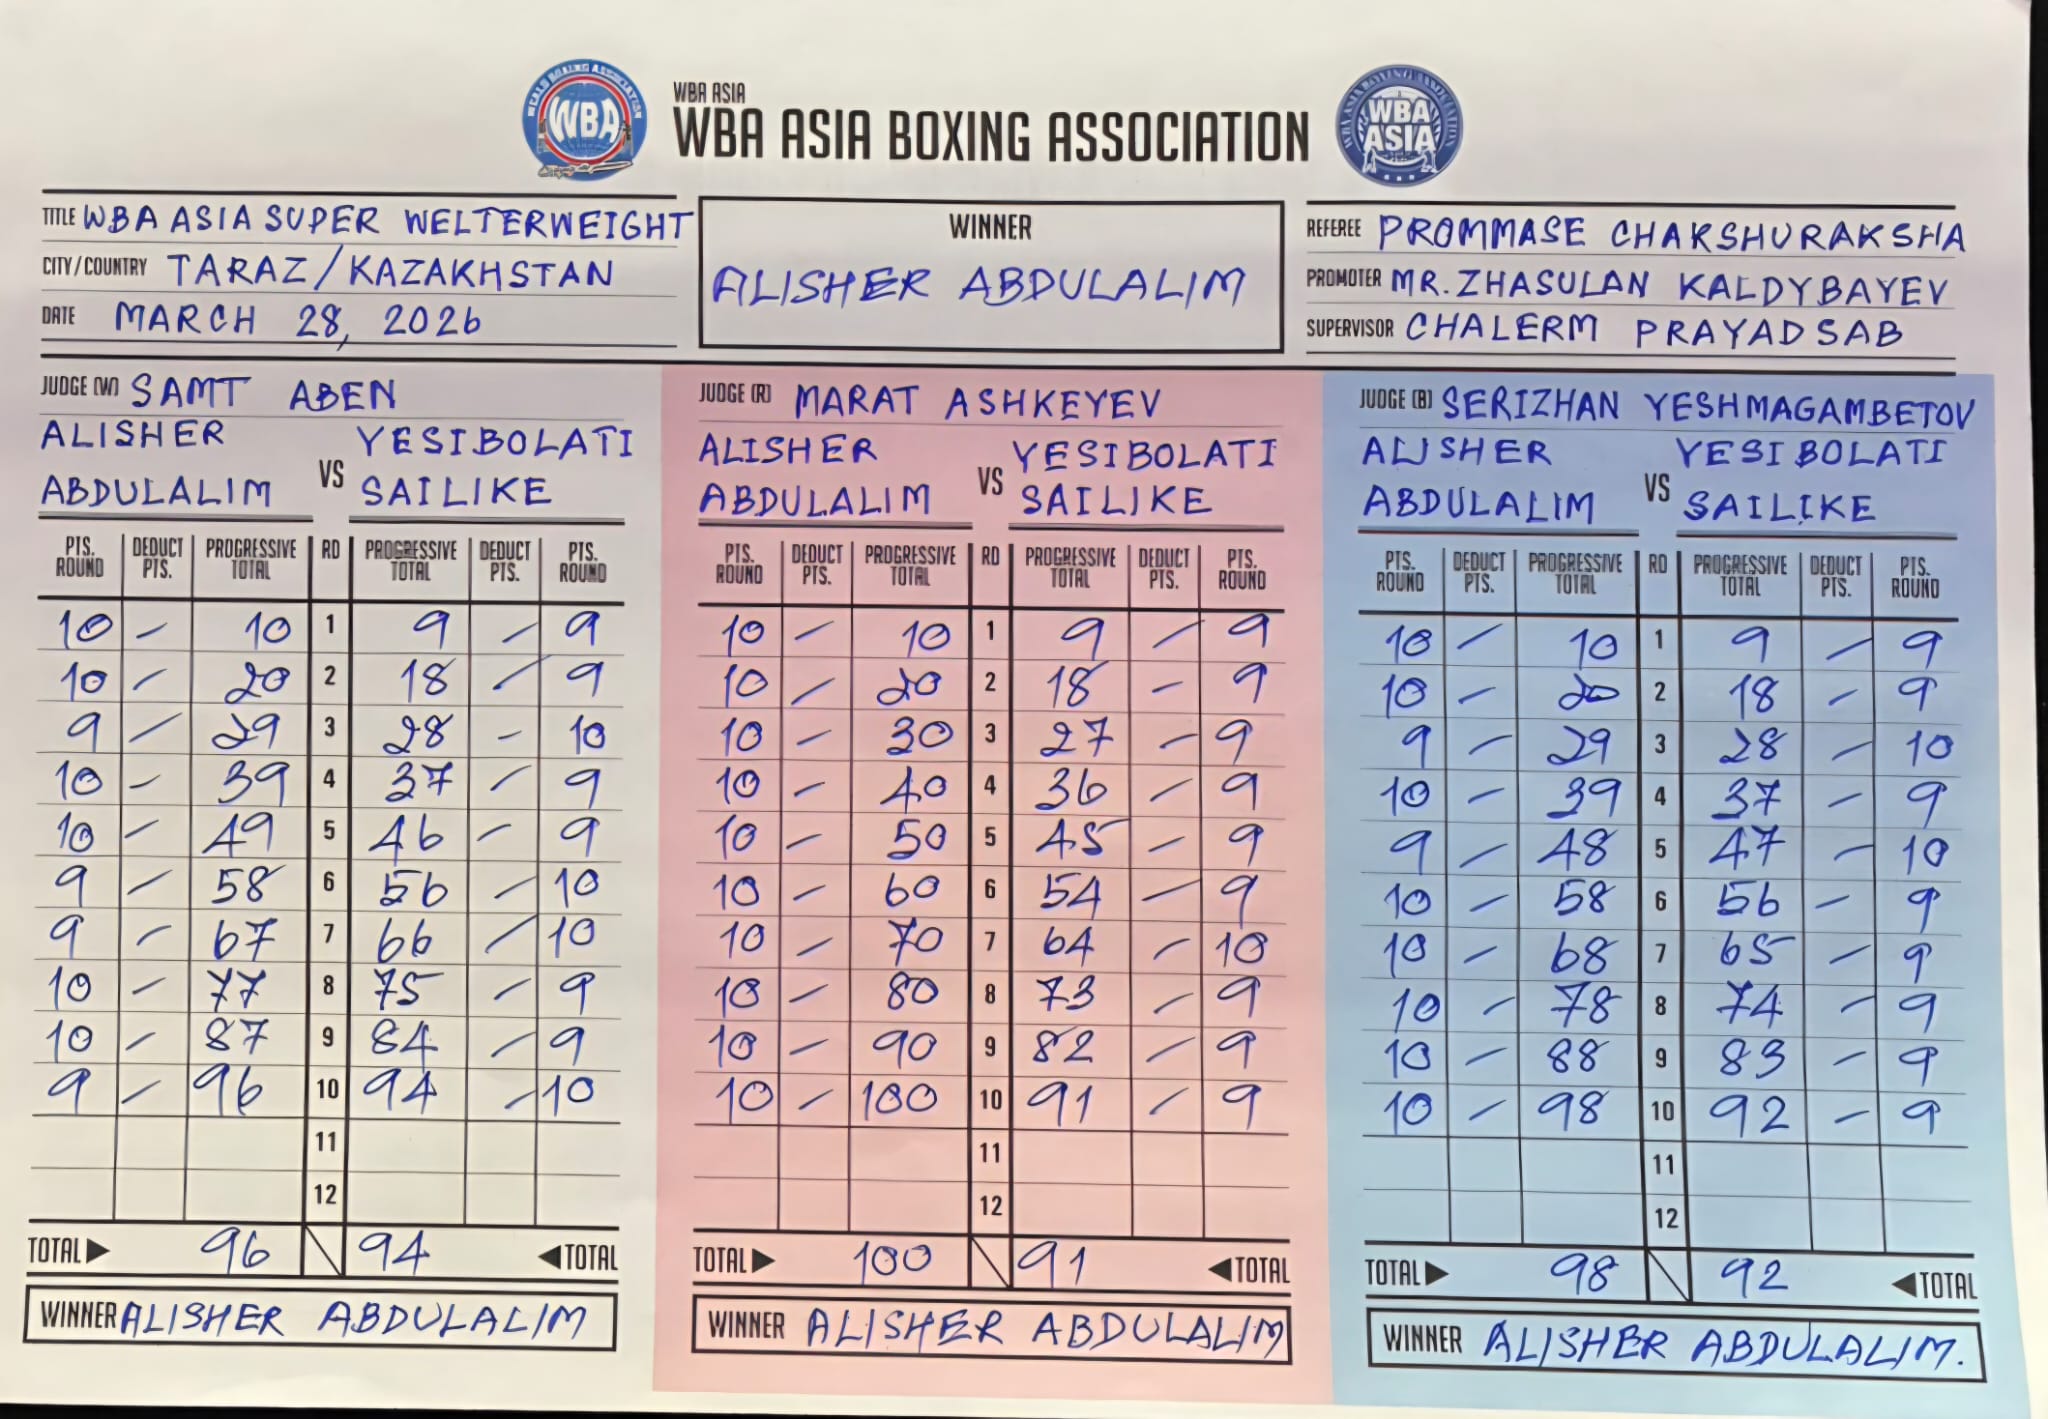 WBA ASIA
WBA ASIA BOXING ASSOCIATION
WBA
WBA ASIA
TITLE WBA ASIA SUPER WELTERWEIGHT
CITY/COUNTRY TARAZ/KAZAKHSTAN
DATE MARCH 28, 2026
WINNER
ALISHER ABDULALIM
REFEREE PROMMASE CHAKSHURAKSHA
PROMOTER MR. ZHASULAN KALDYBAYEV
SUPERVISOR CHALERM PRAYADSAB
JUDGE (W) SAMT ABEN
ALISHER ABDULALIM VS YESIBOLATI SAILIKE
PTS. ROUND DEDUCT PTS. PROGRESSIVE TOTAL RD PROGRESSIVE TOTAL DEDUCT PTS. PTS. ROUND
10 – 10 1 9 – 9
10 – 20 2 18 – 9
9 – 29 3 28 – 10
10 – 39 4 37 – 9
10 – 49 5 46 – 9
9 – 58 6 56 – 10
9 – 67 7 66 – 10
10 – 77 8 75 – 9
10 – 87 9 84 – 9
9 – 96 10 94 – 10
11
12
TOTAL 96 94 TOTAL
WINNER ALISHER ABDULALIM
JUDGE (R) MARAT ASHKEYEV
ALISHER ABDULALIM VS YESIBOLATI SAILIKE
PTS. ROUND DEDUCT PTS. PROGRESSIVE TOTAL RD PROGRESSIVE TOTAL DEDUCT PTS. PTS. ROUND
10 – 10 1 9 – 9
10 – 20 2 18 – 9
10 – 30 3 27 – 9
10 – 40 4 36 – 9
10 – 50 5 45 – 9
10 – 60 6 54 – 9
10 – 70 7 64 – 10
10 – 80 8 73 – 9
10 – 90 9 82 – 9
10 – 100 10 91 – 9
11
12
TOTAL 100 91 TOTAL
WINNER ALISHER ABDULALIM
JUDGE (B) SERIZHAN YESHMAGAMBETOV
ALISHER ABDULALIM VS YESIBOLATI SAILIKE
PTS. ROUND DEDUCT PTS. PROGRESSIVE TOTAL RD PROGRESSIVE TOTAL DEDUCT PTS. PTS. ROUND
10 – 10 1 9 – 9
10 – 20 2 18 – 9
9 – 29 3 28 – 10
10 – 39 4 37 – 9
9 – 48 5 47 – 10
10 – 58 6 56 – 9
10 – 68 7 65 – 9
10 – 78 8 74 – 9
10 – 88 9 83 – 9
10 – 98 10 92 – 9
11
12
TOTAL 98 92 TOTAL
WINNER ALISHER ABDULALIM.